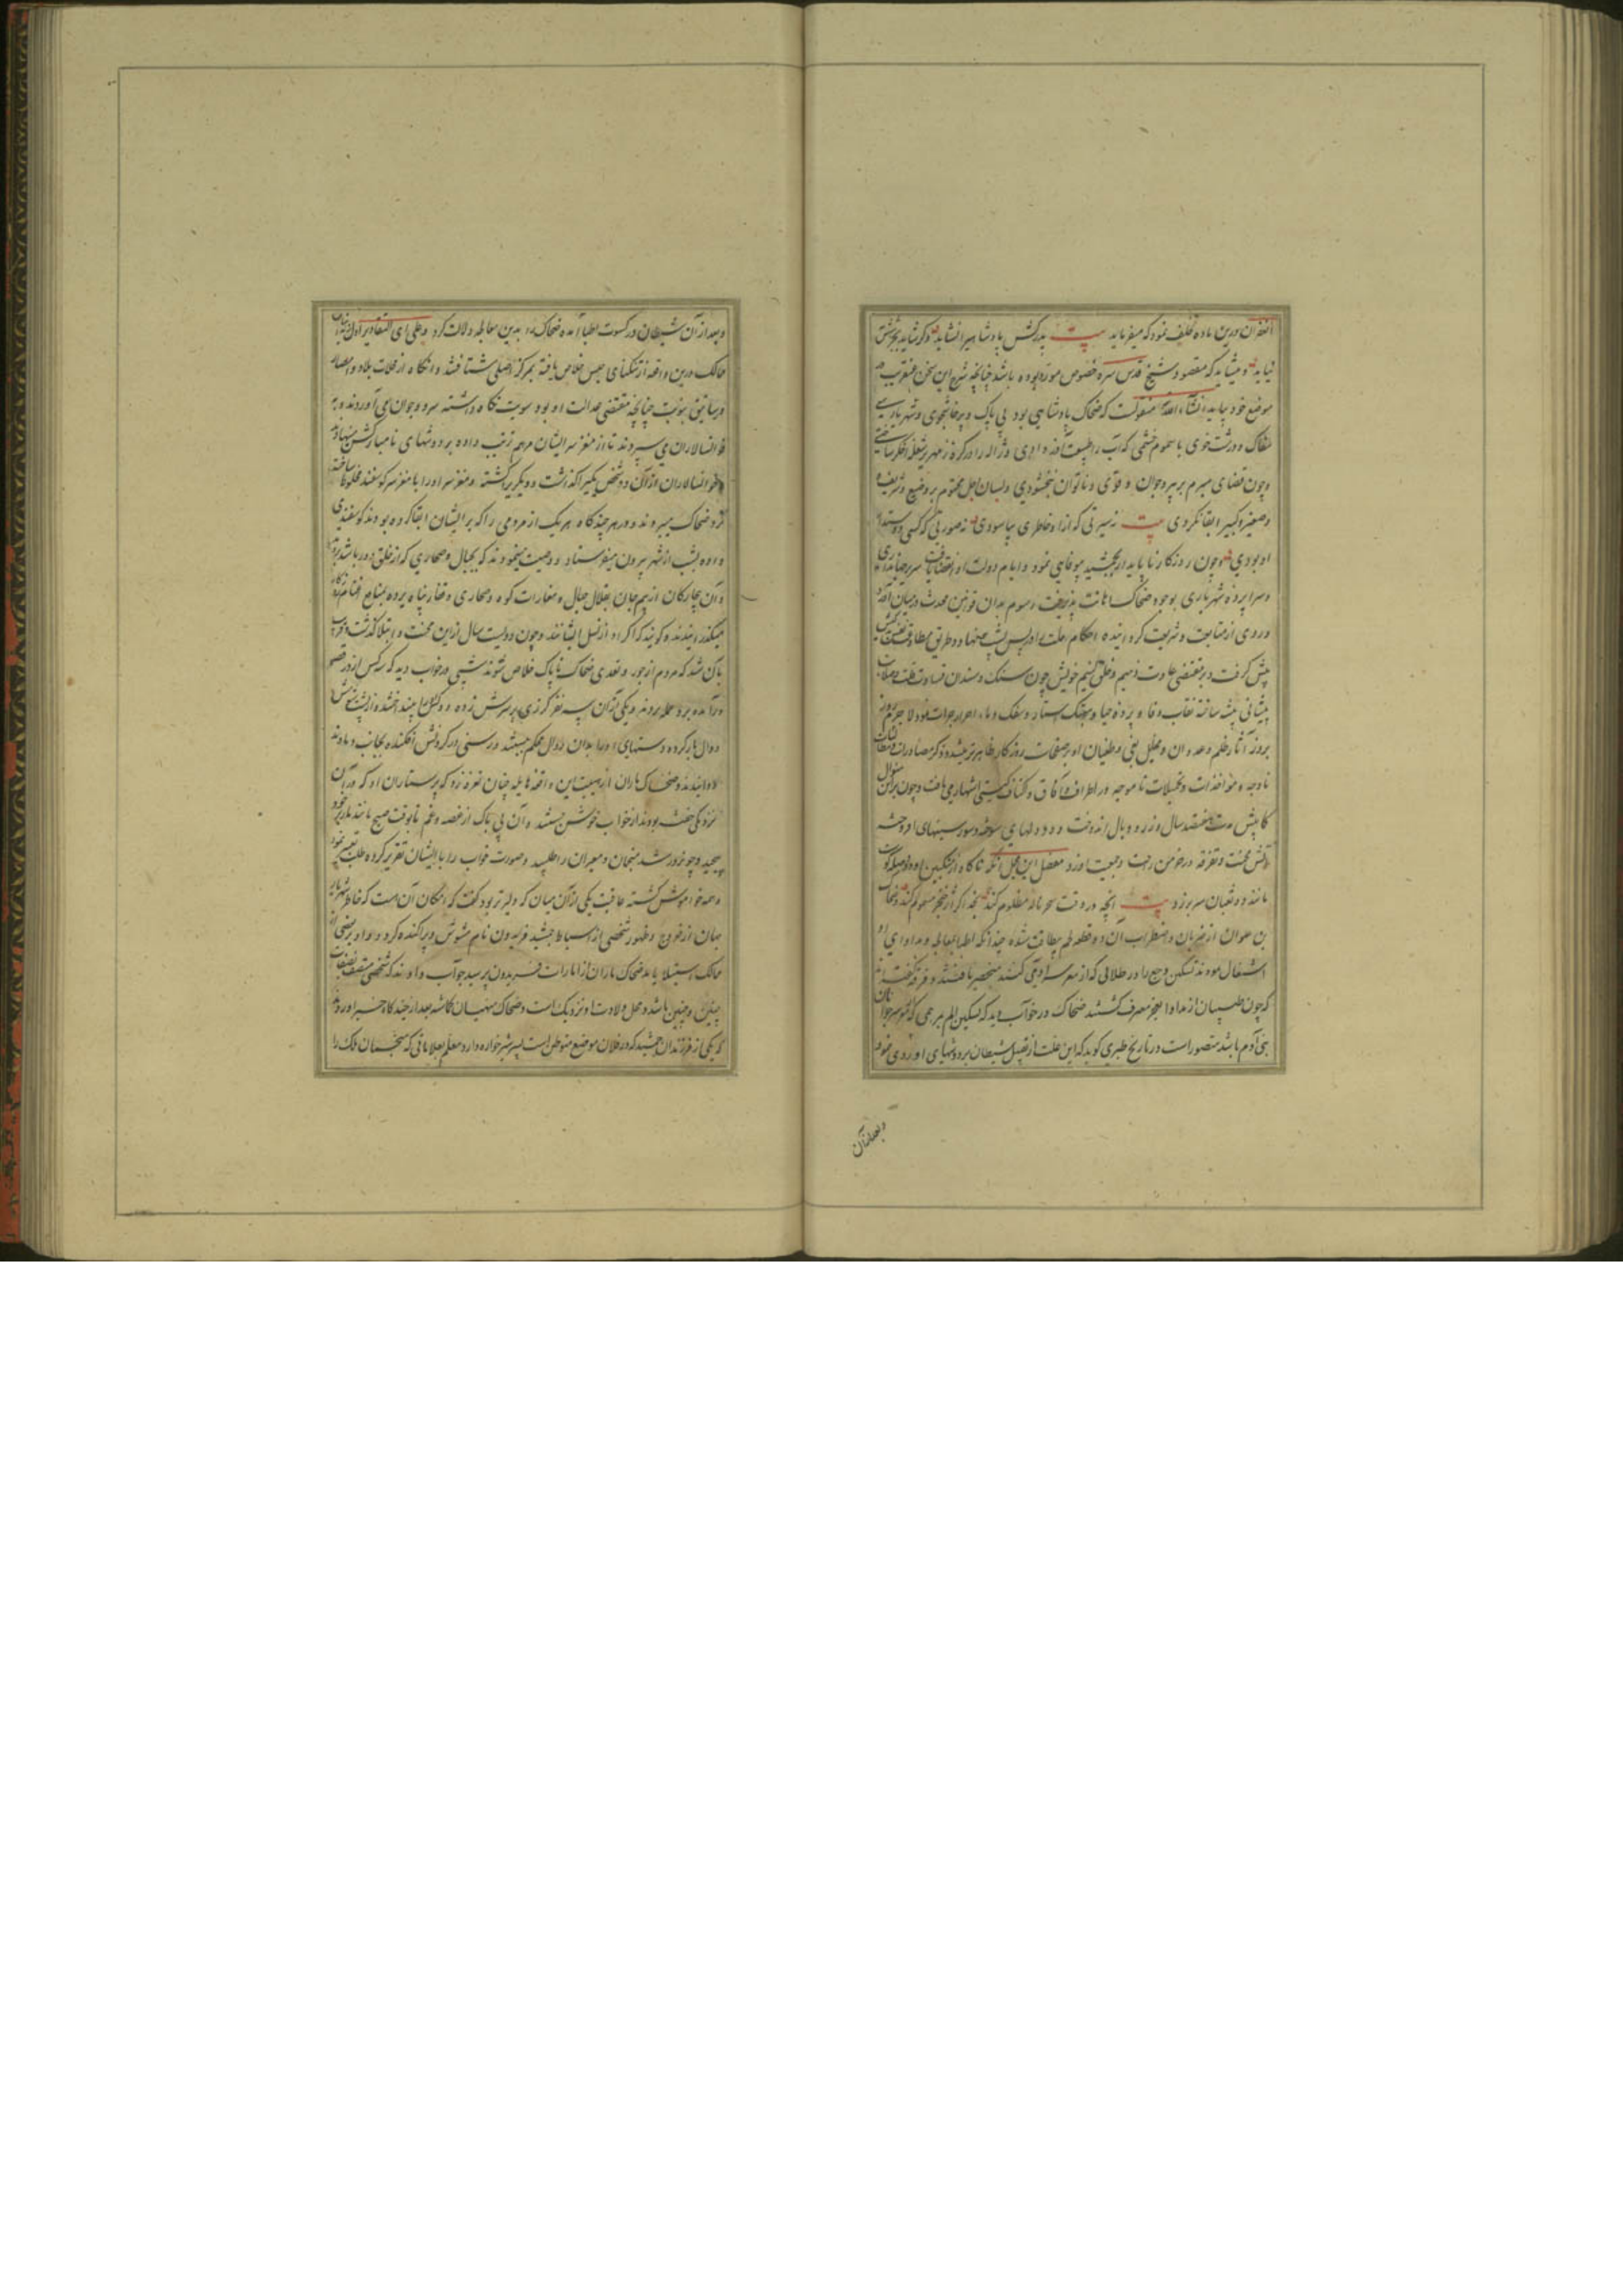 درین ماده تخلف نمود که میفرماید بیت پدرکش پادشاهی را نشاید وگر شاید بجز شش
نپاید و میشاید که مقصود شیخ قدس سره خصوص موده بوده باشد چنانچه شرح این سخن عنقریب در
موضع خود بیاید انشاء الله منقولست که ضحاک پادشاهی بود بی باک و پرخاشجوی و شهریاری
سفاک و درشت خوی با سموم خشمی که آب را طبیعت آذر دادی و ژاله را در کره زمهریر شعله اخگر ساختی
و چون قضای مبرم بر پیر و جوان و قوی و ناتوان نبخشودی و بسان اجل محتوم بر وضیع و شریف و
و صغیر و کبیر ابقا نکردی بیت نه سیرتی که ازو خاطری بیاسودی نه صورتی که کسی دوستدار
او بودی و چون روزگار ناپایدار بجمشید بیوفایی نمود و ایام دولت او انقضا یافت سریر جهانداری
و سراپرده شهریاری بوجود ضحاک اهانت پذیرفت رسوم بد آن قوانین محدث در میان آورد
و روی از متابعت و شریعت گردانیده احکام ملت را در پس پشت نهاد و طریق
پیش گرفت و بر مقتضی عادت ذمیم و خلق لئیم خویش چون سنک و سندان قساوت قلب و صلابت
پیشانی پیشه ساخته نقاب وفا و پرده حیا و هتک استار و سفک دماء احرار جرات نمود لا جرم روز
بروز آثار ظلم و عدوان و مخایل بغی و طغیان او بر صفحات روزگار ظاهرتر میشد و ذکر مصادرات و مطالبات
ناوجه و مؤاخذات و تحمیلات ناموجه در اطراف آفاق و اکناف گیتی اشتهار می یافت و چون برین منوال
کما بیش مدت هفتصد سال وزر و وبال اندوخت و دود دلهای سوخته و سوز سینهای افروخته
آتش محنت و تفرقه در خرمن راحت و جمعیت او زد مفصل این مجمل آنکه ناگاه از منکبین او دو فضله گوشت
مانند دو ثعبان سر بر زد بیت آنچه در وقت سحر ناله مظلوم کند بخدا گر اثر خنجر مسموم کند و ضحاک
بن علوان از ضربان و اضطراب آن دو قطعه لحم بیطاقت شده چندانکه اطبا بمعالجه و مداوای او
اشتغال نمودند تسکین وجع را در طلایی که از مغز سر آدمی کنند منحصر یافتند و فرقه گفته اند
که چون طبیبان از مداوا بعجز معترف گشتند ضحاک در خواب دید که تسکین الم بمرهمی که از مغز سر جوانان
بنی آدم باشد متصور است در تاریخ طبری گوید که این علت از تقبیل شیطان بر دوشهای او روی نمود
وبعد از آن
وبعد از آن شیطان در کسوت اطبا آمده ضحاک را بدین معالجه دلالت کرد وعلی ای التقادیر اول زندانیان
ممالک درین واقعه از تنگنای حبس خلاص یافته بمرکز اصلی شتافتند و آنگاه از محلات بلاد و امصار
و رساتیق بنوبت چنانچه مقتضی عدالت او بود سویت نگاه داشته مرد و جوان می آوردند و به
خوانسالاران می سپردند تا از مغز سر ایشان مرهم ترتیب داده بر دوشهای نامبارکش مینهادند
و خوانسالاران از آن دو شخص یکی را گذاشت و دیگری را کشته و مغز سر او را با مغز سر گوسفند مخلوط ساخته
نزد ضحاک میبردند و در هر چندگاه هر یک از مردمی را که بر ایشان ابقا کرده بودند گوسفندی
داده بشب از شهر بیرون میفرستاد و وصیت مینمودند که بجبال و صحاری که از خلق دور باشد برو
و آن بیچارگان از بیم جان بقلال جبال و مغارات کوه و صحاری و قفار پناه برده بنتایج اغنام روزگار
میگذرانیدند و گویند که اکراد از نسل ایشانند و چون دویست سال ازین محنت و ابتلا گذشت و قریب
بآن شد که مردم از جور و تعدی ضحاک ناپاک خلاص شوند شبی در خواب دید که سه کس از در قصر
درآمده برو حمله بردند و یکی از آن سه نفر گرزی بر سرش زده و دوال باند اخته از پشتش
دوال باز کرده و دستهای او را بدان دوال محکم ببستند و رسنی در گردنش افکنده بجانب دماوند
دوانیدند و ضحاک ماران از هیبت این واقعه هایله چنان نعره زد که پرستاران او که در آن
نزدیکی خفته بودند از خواب خوش جستند و آن بی باک از غصه و غم تا بوقت صبح مانند مار بر خود
پیچید و چو روز شد منجمان و معبران را طلبید و صورت خواب را با ایشان تقریر کرده طلب تعبیر نمود
و همه خاموش گشته عاقبت یکی از آن میان که دلیرتر بود گفت که امکان آن هست که خاطر شهریار
جهان از خروج و ظهور شخصی از اسباط جمشید فریدون نام مشوش و پراکنده گردد و او بر بعضی از
ممالک استیلا یابد ضحاک ماران از امارات فریدون پرسید جواب دادند که شخصی متصف بصفات
چنین و چنین باشد و محل ولادت او نزدیک است و ضحاک منهیان گماشته بعد از چندگاه خبر آوردند
که یکی از فرزندان جمشید که در فلان موضع متوطن است پسر شیرخواره دارد معلم بعلاماتی که منجمان ملک را